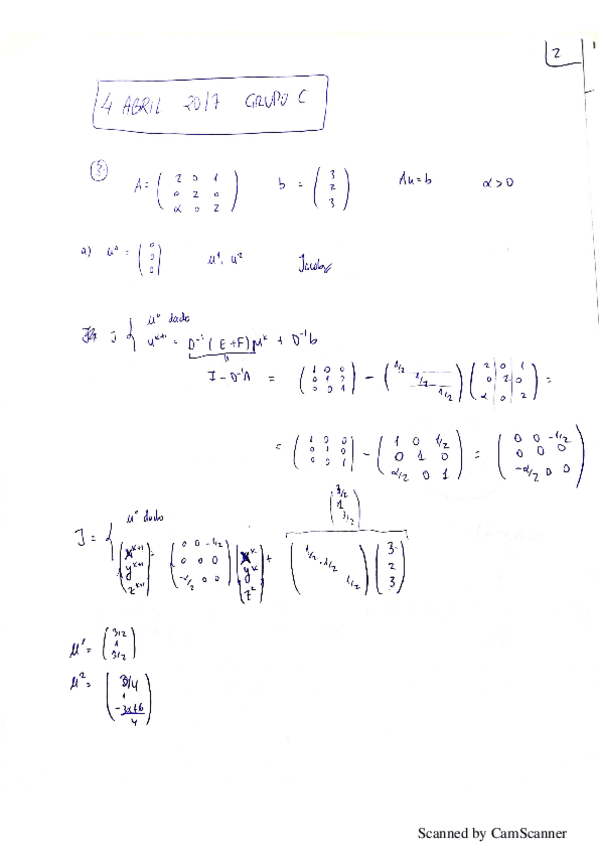 2
4 ABRIL 2017 GRUPO C
3. A = ( 2 0 1 / 0 2 0 / α 0 2 ) b = ( 3 / 2 / 3 ) Au = b α > 0
a) u⁰ = ( 0 / 0 / 0 ) u¹, u² Jacobi
J { u⁰ dado
uᵏ⁺¹ = D⁻¹(E+F)uᵏ + D⁻¹b
I - D⁻¹A = ( 1 0 0 / 0 1 0 / 0 0 1 ) - ( 1/2 / 1/2 / 1/2 ) ( 2 0 1 / 0 2 0 / α 0 2 ) =
= ( 1 0 0 / 0 1 0 / 0 0 1 ) - ( 1 0 1/2 / 0 1 0 / α/2 0 1 ) = ( 0 0 -1/2 / 0 0 0 / -α/2 0 0 )
( 3/2 / 1 / 3/2 )
J = { u⁰ dado
( xᵏ⁺¹ / yᵏ⁺¹ / zᵏ⁺¹ ) = ( 0 0 -1/2 / 0 0 0 / -α/2 0 0 ) ( xᵏ / yᵏ / zᵏ ) + ( 1/2 / 1/2 / 1/2 ) ( 3 / 2 / 3 )
u¹ = ( 3/2 / 1 / 3/2 )
u² = ( 3/4 / 1 / (-3α+6)/4 )
Scanned by CamScanner